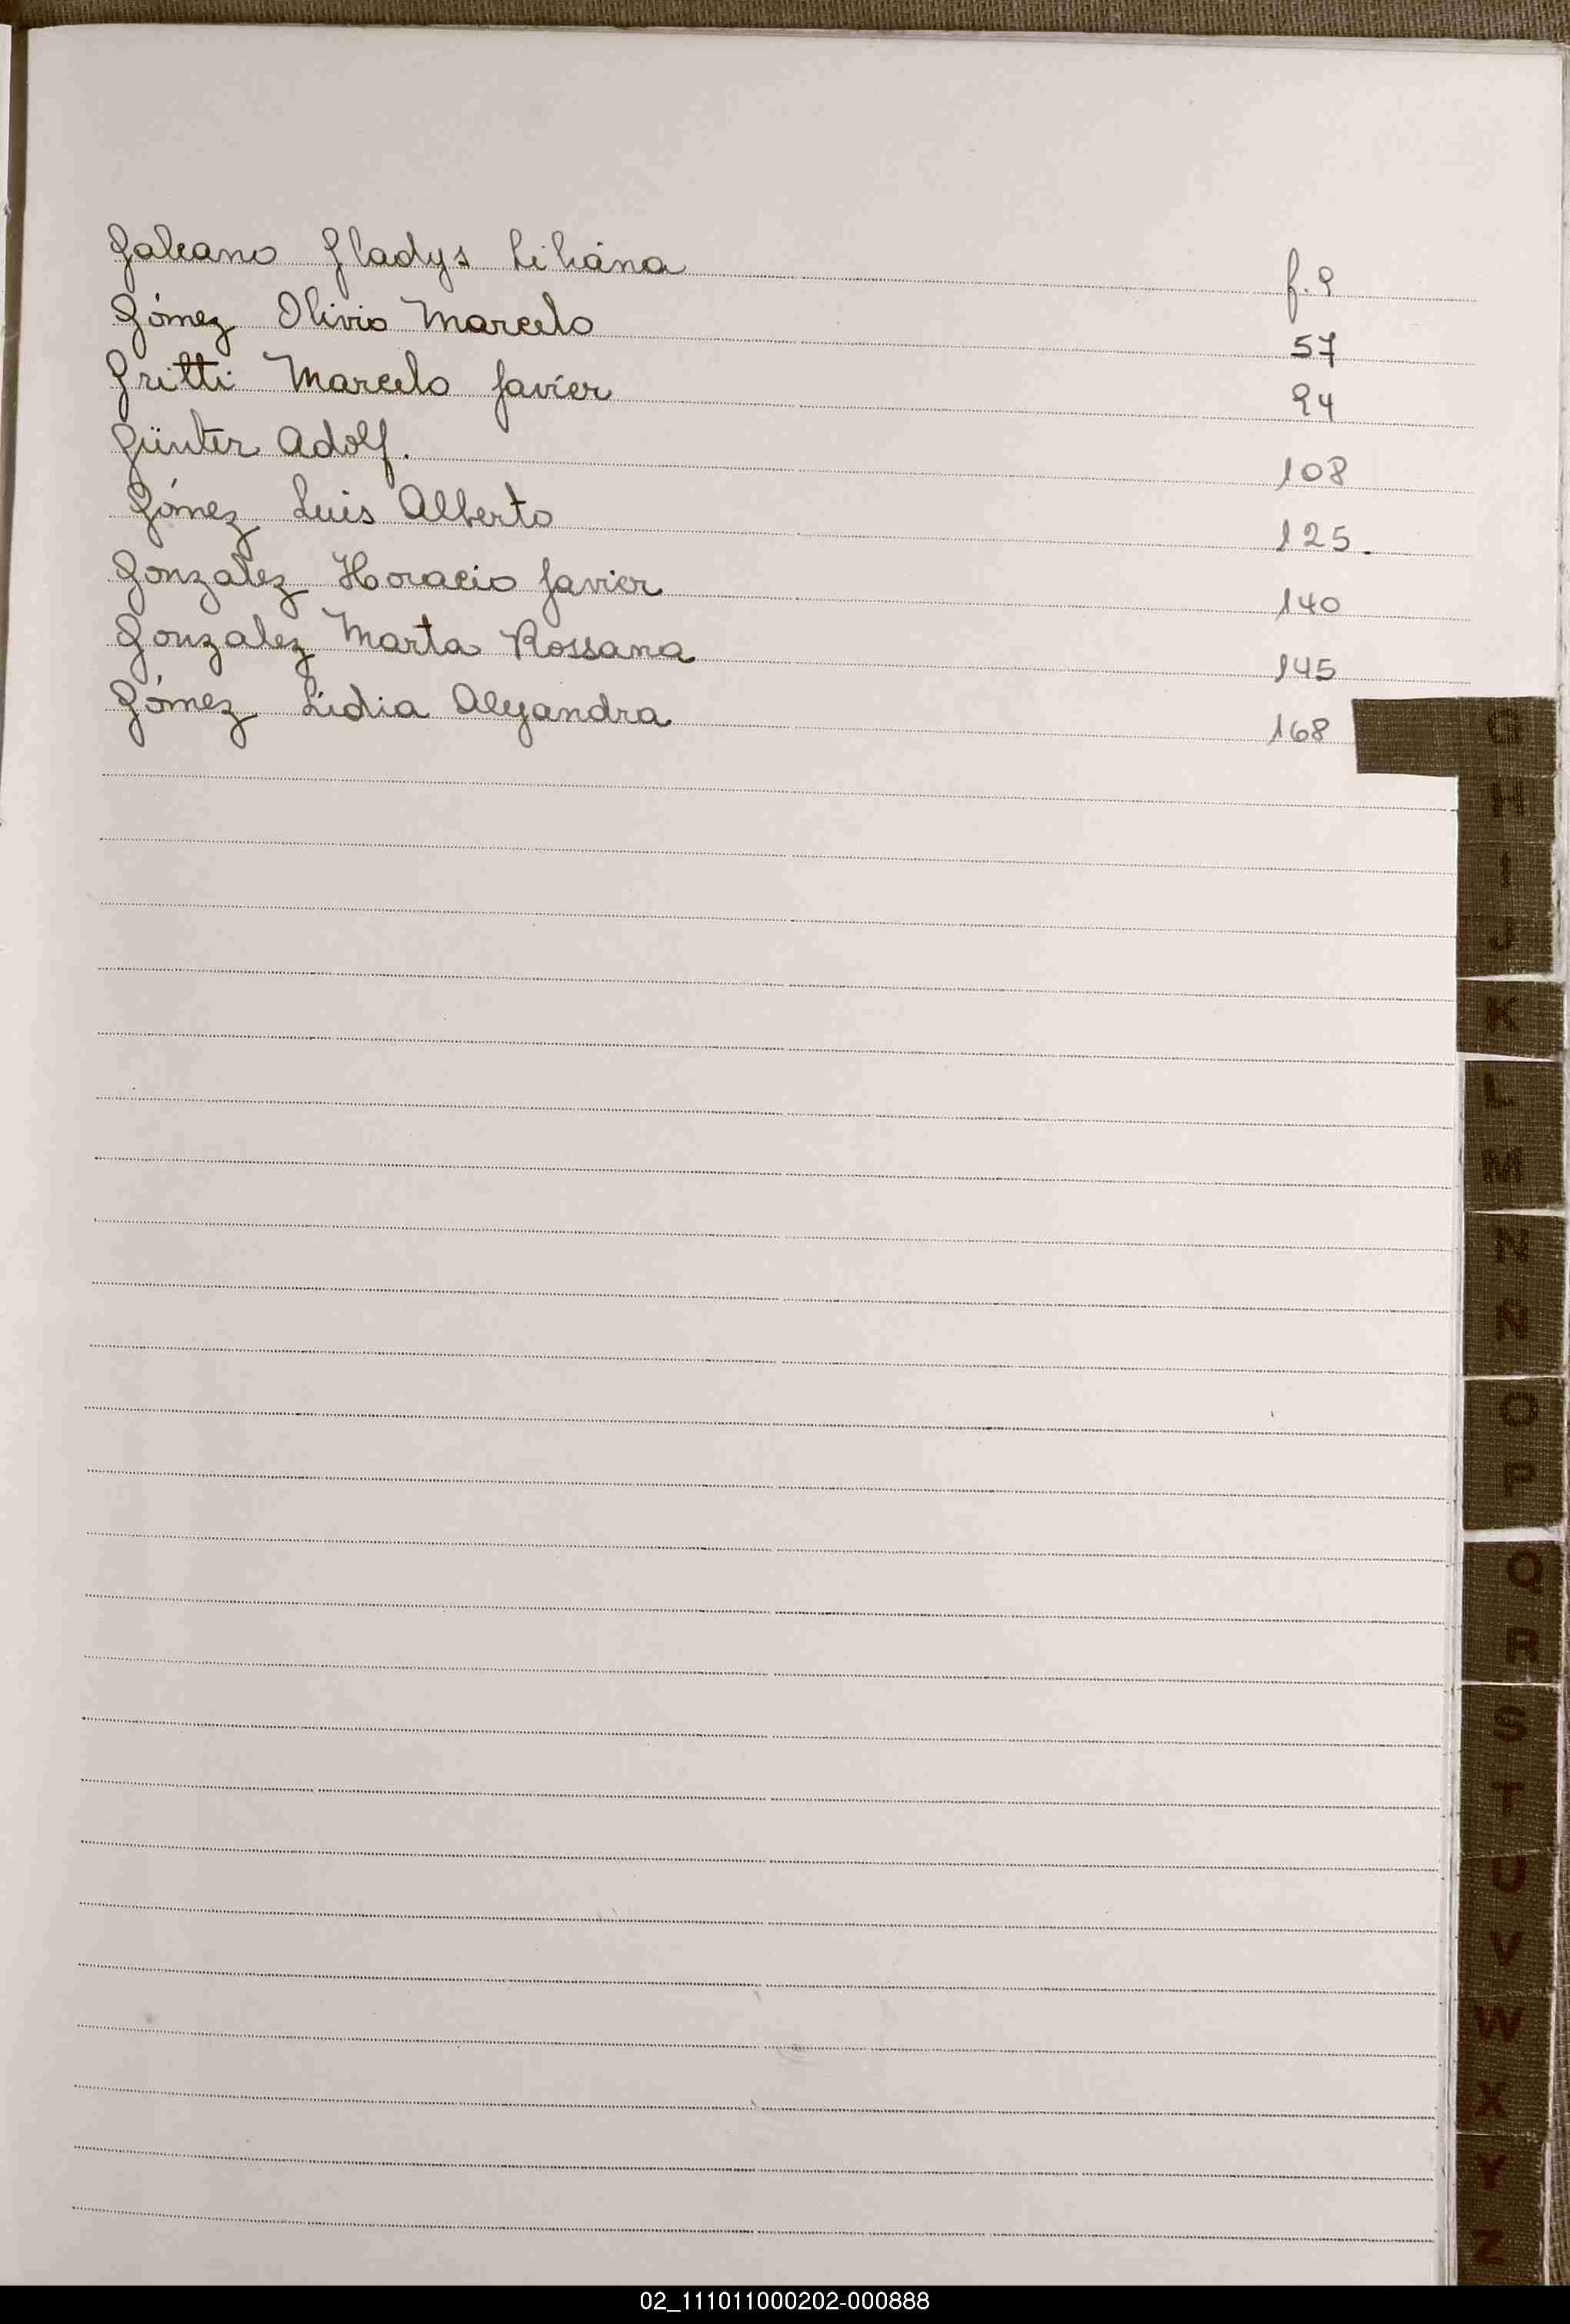 Galeano Gladys Liliána f. 9
Gómez Olivio Marcelo 57
Gritti Marcelo Javier 94
Günter Adolf. 108
Gómez Luis Alberto 125.
Gonzalez Horacio Javier 140
Gonzalez Marta Rossana 145
Gómez Lidia Alejandra 168
G
H
I
J
K
L
M
N
Ñ
O
P
Q
R
S
T
U
V
W
X
Y
Z
02_111011000202-000888